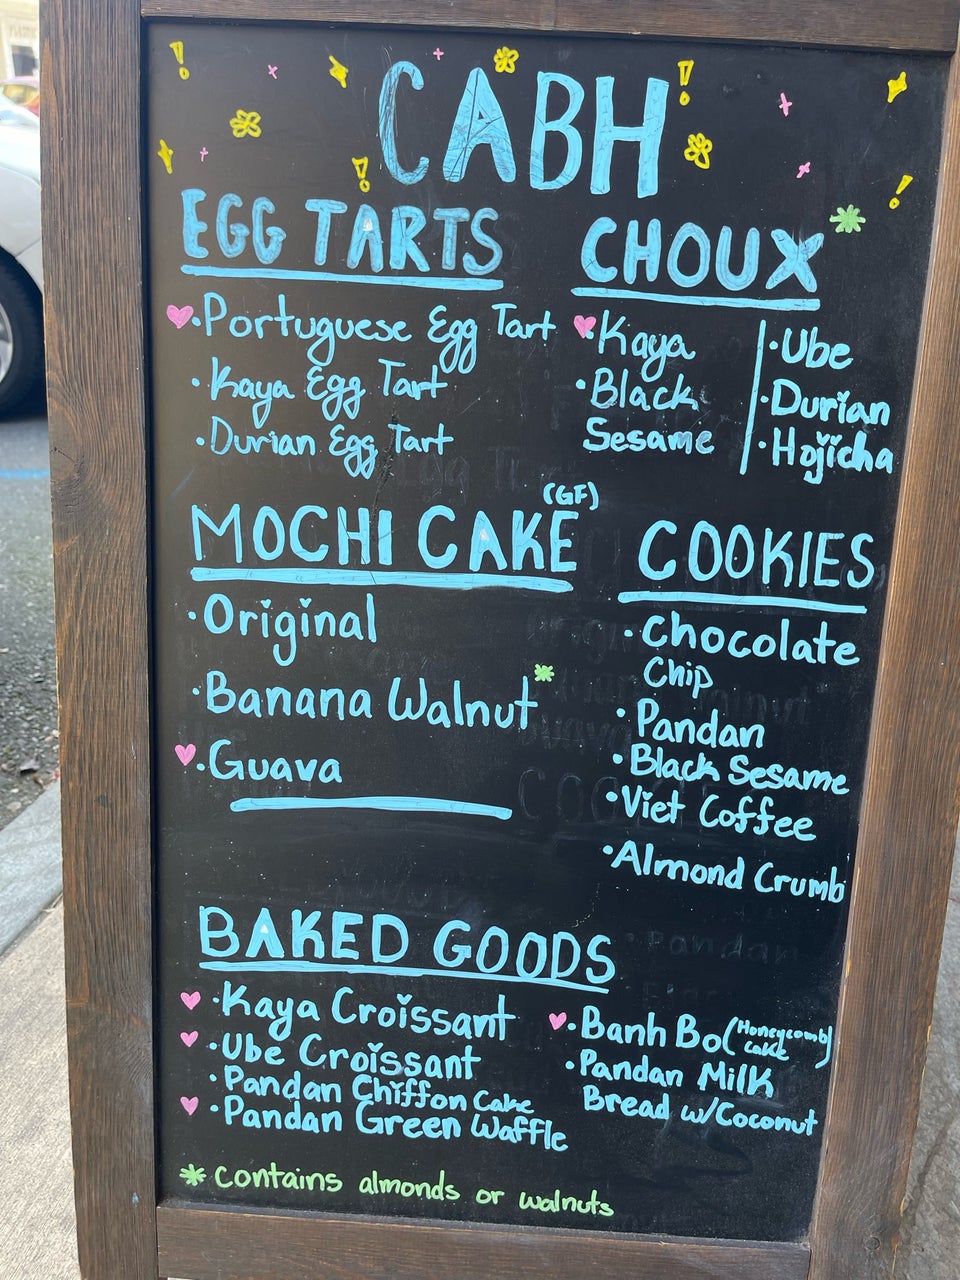 CABH
EGG TARTS
·Portuguese Egg Tart
·Kaya Egg Tart
·Durian Egg Tart
CHOUX *
·Kaya
·Black
Sesame
·Ube
·Durian
·Hojicha
MOCHI CAKE (GF)
·Original
·Banana Walnut *
·Guava
COOKIES
·Chocolate
Chip
·Pandan
·Black Sesame
·Viet Coffee
·Almond Crumb
BAKED GOODS
·Kaya Croissant
·Ube Croissant
·Pandan Chiffon Cake
·Pandan Green Waffle
·Banh Bo (Honeycomb
cake)
·Pandan Milk
Bread w/Coconut
* Contains almonds or walnuts